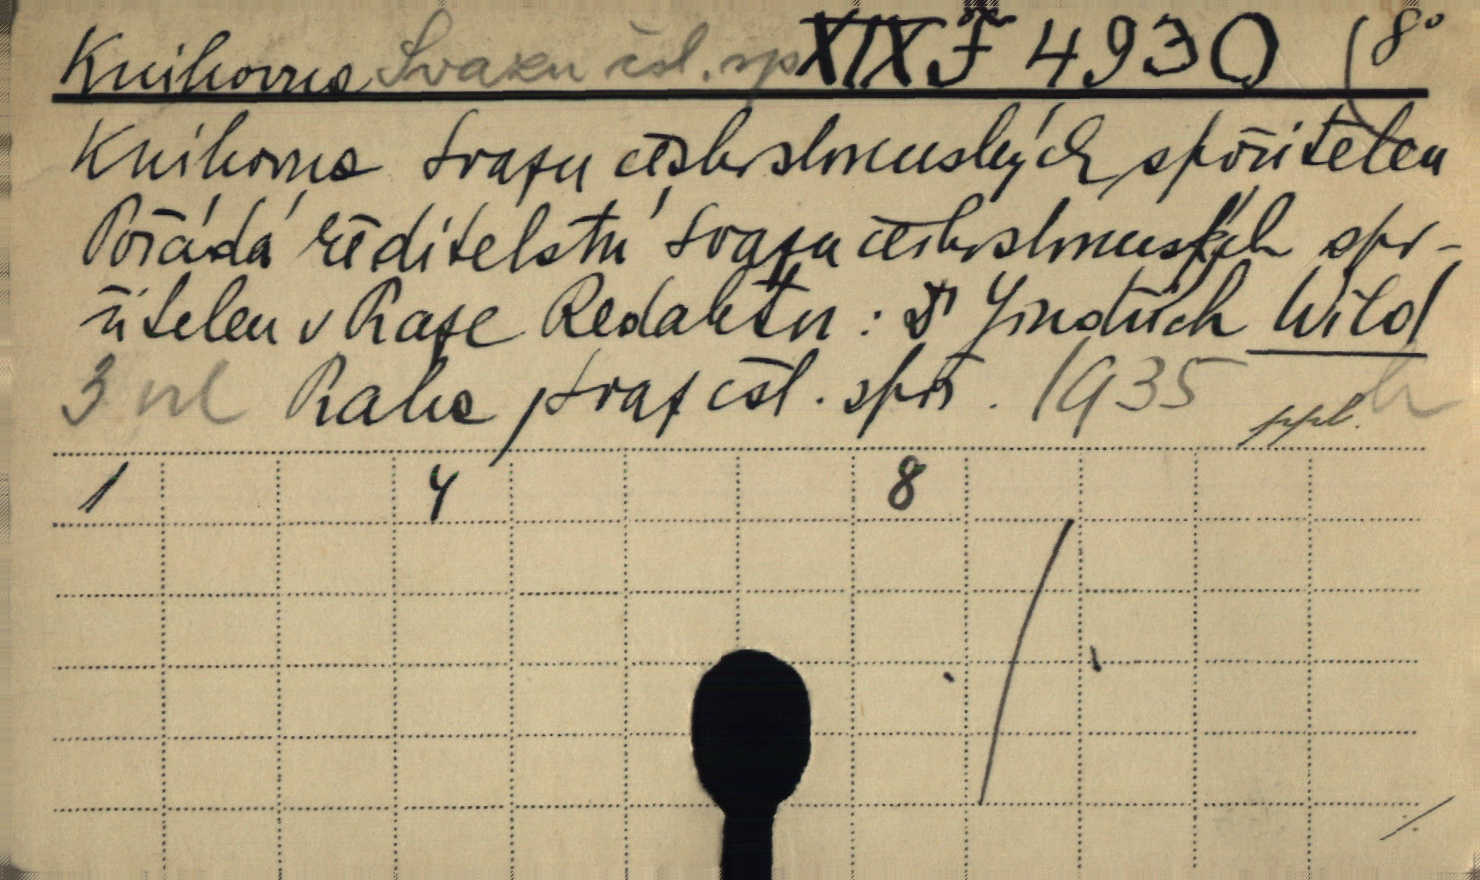 Knihovna Svazu čsl. sp XIX F 4930 (8°
Knihovna Svazu československých spořitelen
Pořádá ředitelství Svazu československých spo-
řitelen v Praze Redaktor: Dr Jindřich Wild
3 Praha, Svaz čsl. spoř. 1935 ppl.
1 4 8